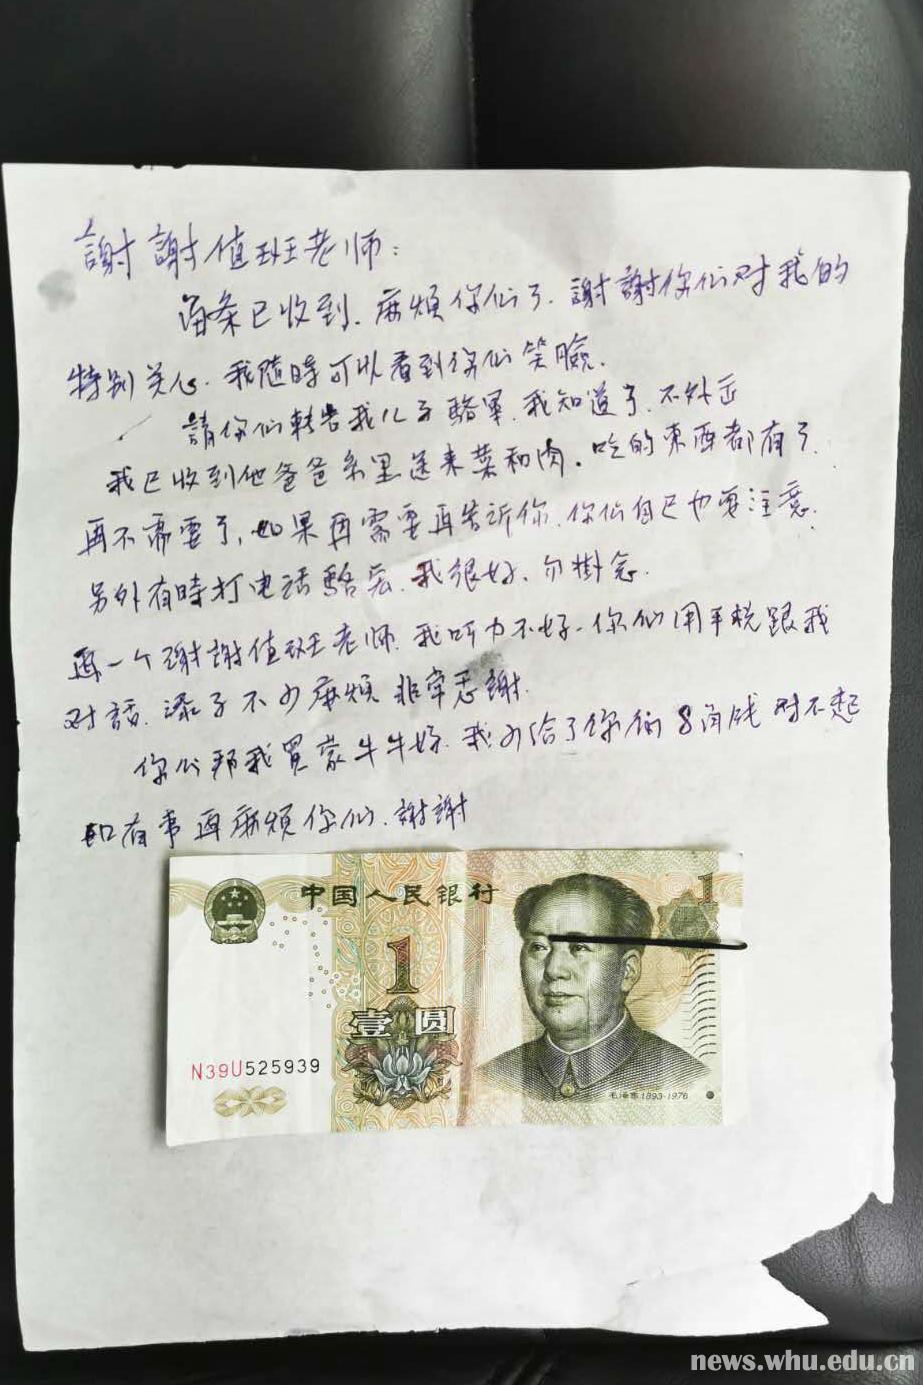 謝謝值班老师：
每条已收到.麻煩你们了.謝謝你们对我的
特别关心.我随時可以看到你们笑臉.
請你们轉告我儿子 軍.我知道了.不外出
我已收到他爸爸系里送来菜和肉.吃的東西都有了.
再不需要了,如果再需要再告訴你.你们自己也要注意.
另外有時打电话 宏.我很好、勿掛念.
再一个謝謝值班老师.我听力不好.你们用手 跟我
对話.添了不少麻煩 非常 謝.
你们帮我買蒙牛牛奶.我少给了你们8角钱 对不起
如有事再麻煩你们.謝謝
中国人民银行
1
1
壹圆
N39U525939
毛泽东 1893-1976
news.whu.edu.cn